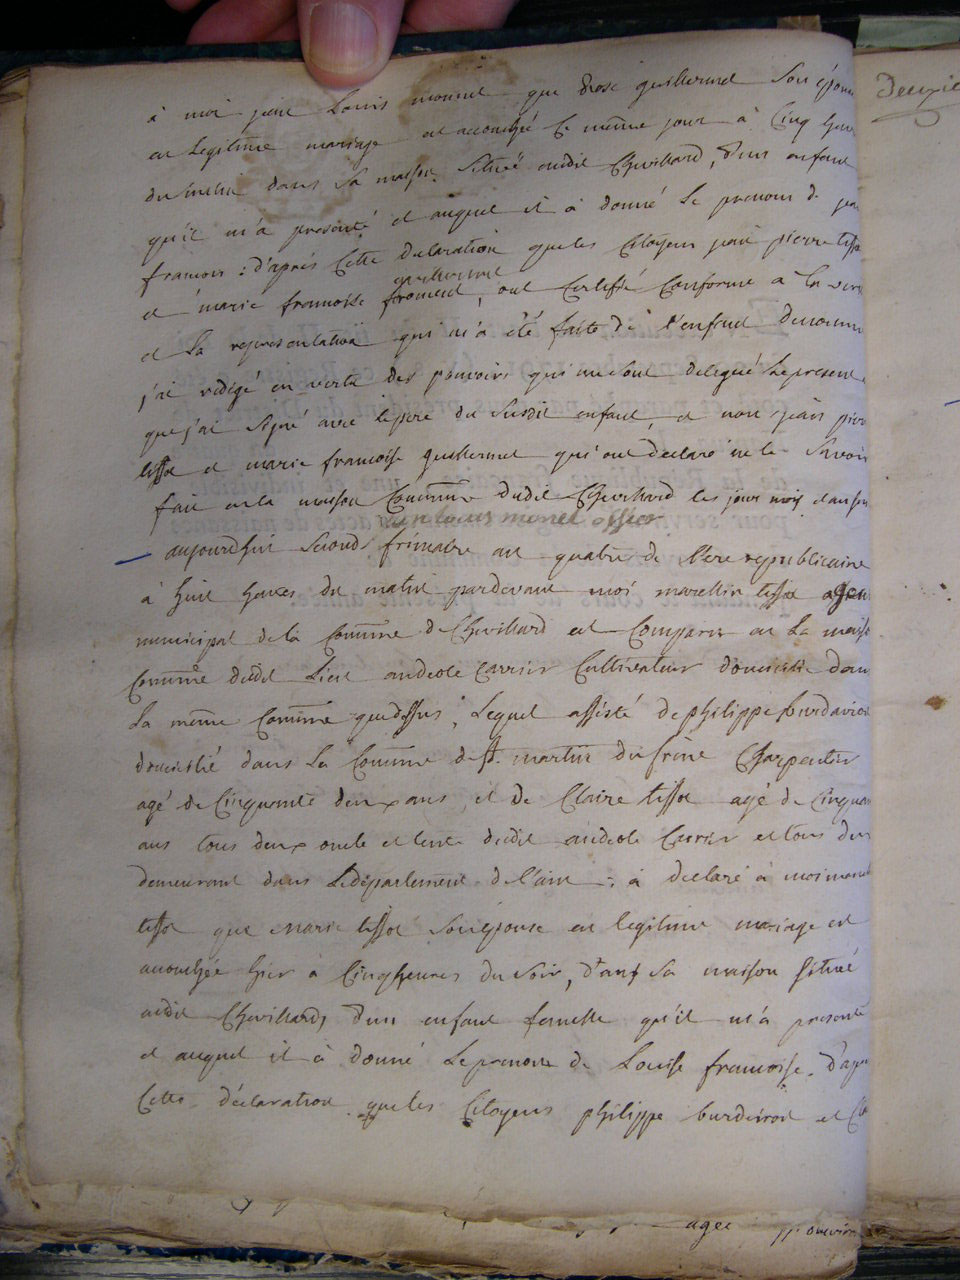 à moi jean Louis monnet que Rose guillermet Son épouse
en Legitime mariage est accouchée Ce même jour à Cinq heur
du matin dans Sa maison Située audit Chevillard, d'un enfant
qu'il m'à presenté et auquel il à donné Le prenom de jean
francois : d'après Cette declaration que les Citoyens jean pierre tissot
guillermet
et marie francoise froment, ont Certifié Conforme a la veri
et La representation qui m'à été faite de l'enfant denommé
j'ai redigé en vertu des pouvoirs qui me sont delegué Le present
que j'ai Signé avec le pere du Susdit enfant, et non jean pierre
tissot et marie francoise guillermet qui ont declaré ne le Savoir
fait en la maison Commune dudit Chevillard les jour mois et an sus
jean louis monet officier
aujourdhui Second frimaire an quatre de l'ere republicaine
à huit heures du matin pardevant moi marellin tissot agent
municipal de la Commune de Chevillard est Comparu en La maison
Commune dudit Lieu andeole Carrier Cultivateur domicilié dans
La même Commune que dessus, Lequel assisté de philippe burdairon
domicilié dans La Commune de St. martin du frêne Charpentier
agé de Cinquante deux ans, et de Claire tissot agé de Cinquan
ans tous deux oncle et tente dudit andeole Carrier et tous deu
demeurant dans Le département de l'ain : à declaré à moi marel
tissot que marie tissot Son épouse en legitime mariage est
accouchée hier à Cinq heures du soir, dans Sa maison Située
audit Chevillard, d'un enfant femelle qu'il m'a presenté
et auquel il à donné Le prenom de Louise francoise. d'aprè
Cette déclaration que les Citoyens philippe burdairon et Cla
agée
Deuxie